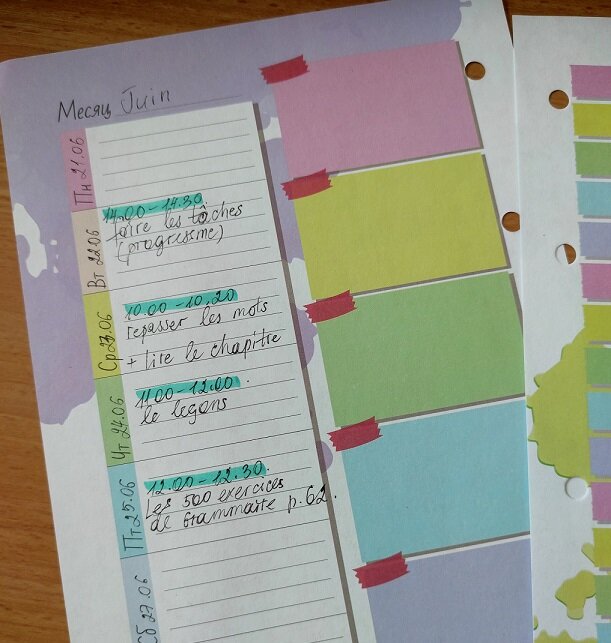 Месяц Juin
Пн 21.06
Вт 22.06
14.00-14.30
faire les tâches
(progresime)
Ср 23.06
10.00-10.20
repasser les mots
+ lire le chapitre
Чт 24.06
11.00-12.00.
le leçons
Пт 25.06
12.00-12.30.
Les 500 exercices
de Grammaite p.62.
Сб 27.06